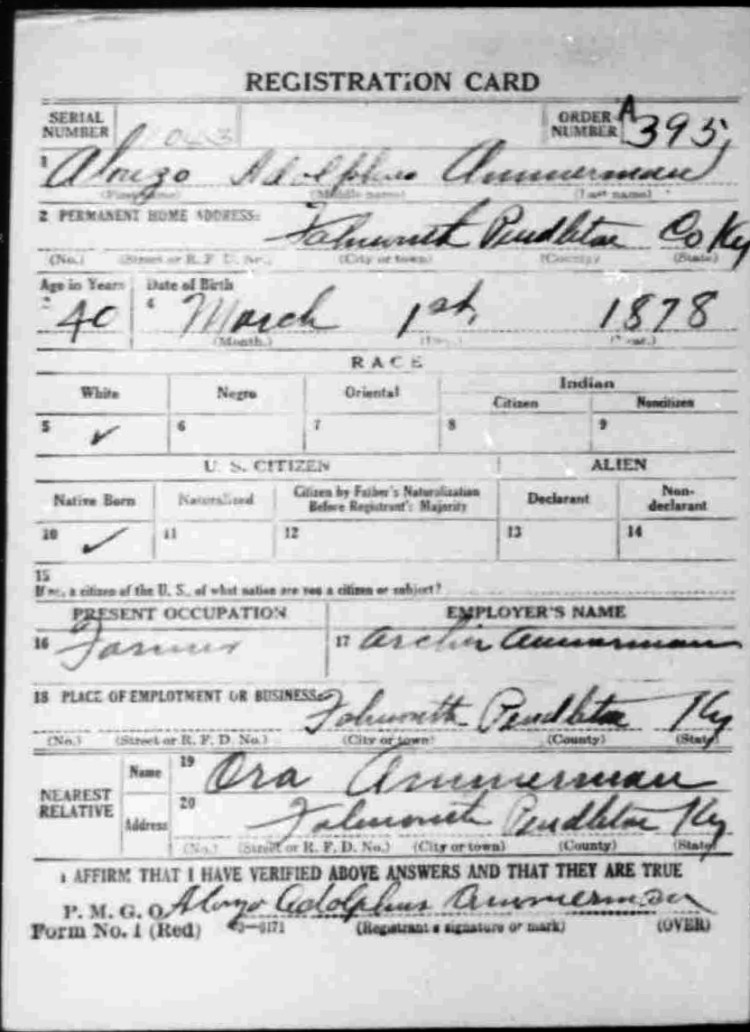 REGISTRATION CARD
SERIAL NUMBER ORDER NUMBER A 395
1 Alonzo Adolphus Ammerman
(First name) (Middle name) (Last name)
2 PERMANENT HOME ADDRESS:
Falmouth Pendleton Co Ky
(No.) (Street or R. F. D. No.) (City or town) (County) (State)
Age in Years Date of Birth
3 40 4 March 1st, 1878
(Month.) (Day.) (Year.)
RACE
White Negro Oriental Indian
Citizen Noncitizen
5 ✓ 6 7 8 9
U. S. CITIZEN ALIEN
Native Born Naturalized Citizen by Father's Naturalization Before Registrant's Majority Declarant Non-declarant
10 ✓ 11 12 13 14
15
If not a citizen of the U. S., of what nation are you a citizen or subject?
PRESENT OCCUPATION EMPLOYER'S NAME
16 Farmer 17 Archie Ammerman
18 PLACE OF EMPLOYMENT OR BUSINESS:
Falmouth Pendleton Ky
(No.) (Street or R. F. D. No.) (City or town) (County) (State)
NEAREST RELATIVE
Name 19 Ora Ammerman
Address 20 Falmouth Pendleton Ky
(No.) (Street or R. F. D. No.) (City or town) (County) (State)
I AFFIRM THAT I HAVE VERIFIED ABOVE ANSWERS AND THAT THEY ARE TRUE
P. M. G. O. Alonzo Adolphus Ammerman
Form No. 1 (Red) 3—6171 (Registrant's signature or mark) (OVER)